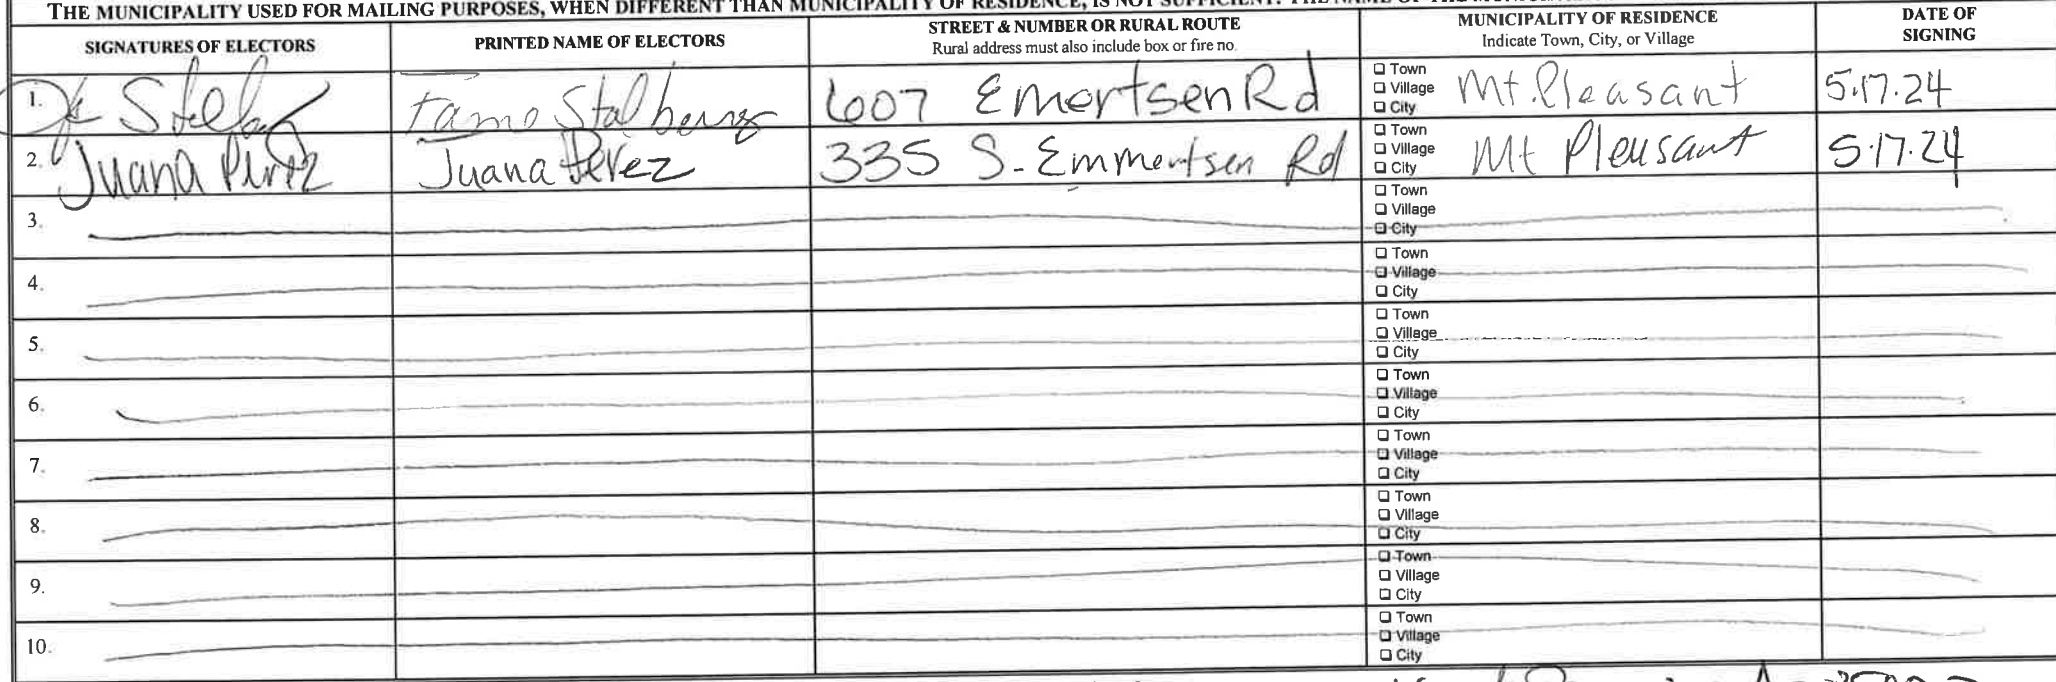 THE MUNICIPALITY USED FOR MAILING PURPOSES, WHEN DIFFERENT THAN MUNICIPALITY OF RESIDENCE, IS NOT SUFFICIENT.
SIGNATURES OF ELECTORS
PRINTED NAME OF ELECTORS
STREET & NUMBER OR RURAL ROUTE
Rural address must also include box or fire no.
MUNICIPALITY OF RESIDENCE
Indicate Town, City, or Village
DATE OF
SIGNING
1. Stalberg 607 Emertsen Rd
Town
Village
City
Mt. Pleasant 5.17.24
2. Juana Perez Juana Perez 335 S. Emmertsen Rd
Town
Village
City
Mt Pleasant 5.17.24
3.
Town
Village
City
4.
Town
Village
City
5.
Town
Village
City
6.
Town
Village
City
7.
Town
Village
City
8.
Town
Village
City
9.
Town
Village
City
10.
Town
Village
City